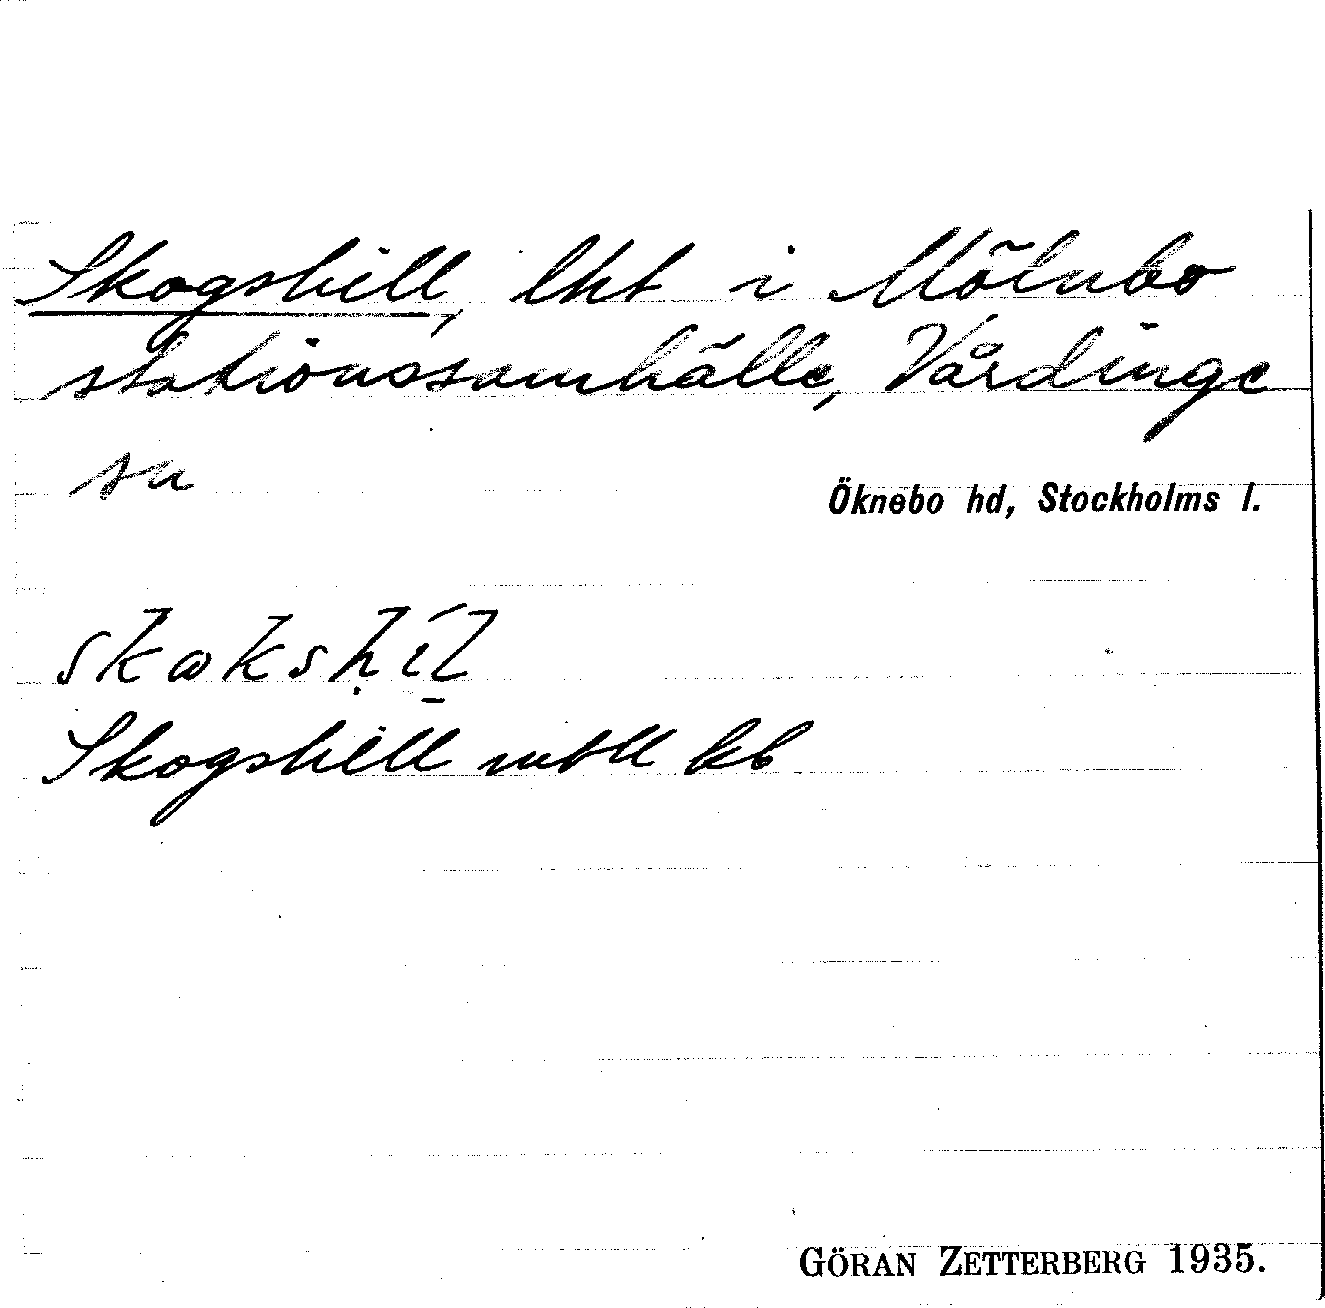 Skogshill, lht i Mölnbo
stationssamhälle, Vårdinge
sn
Öknebo hd, Stockholms l.
skakshíl
Skogshill mtll kb
GÖRAN ZETTERBERG 1935.